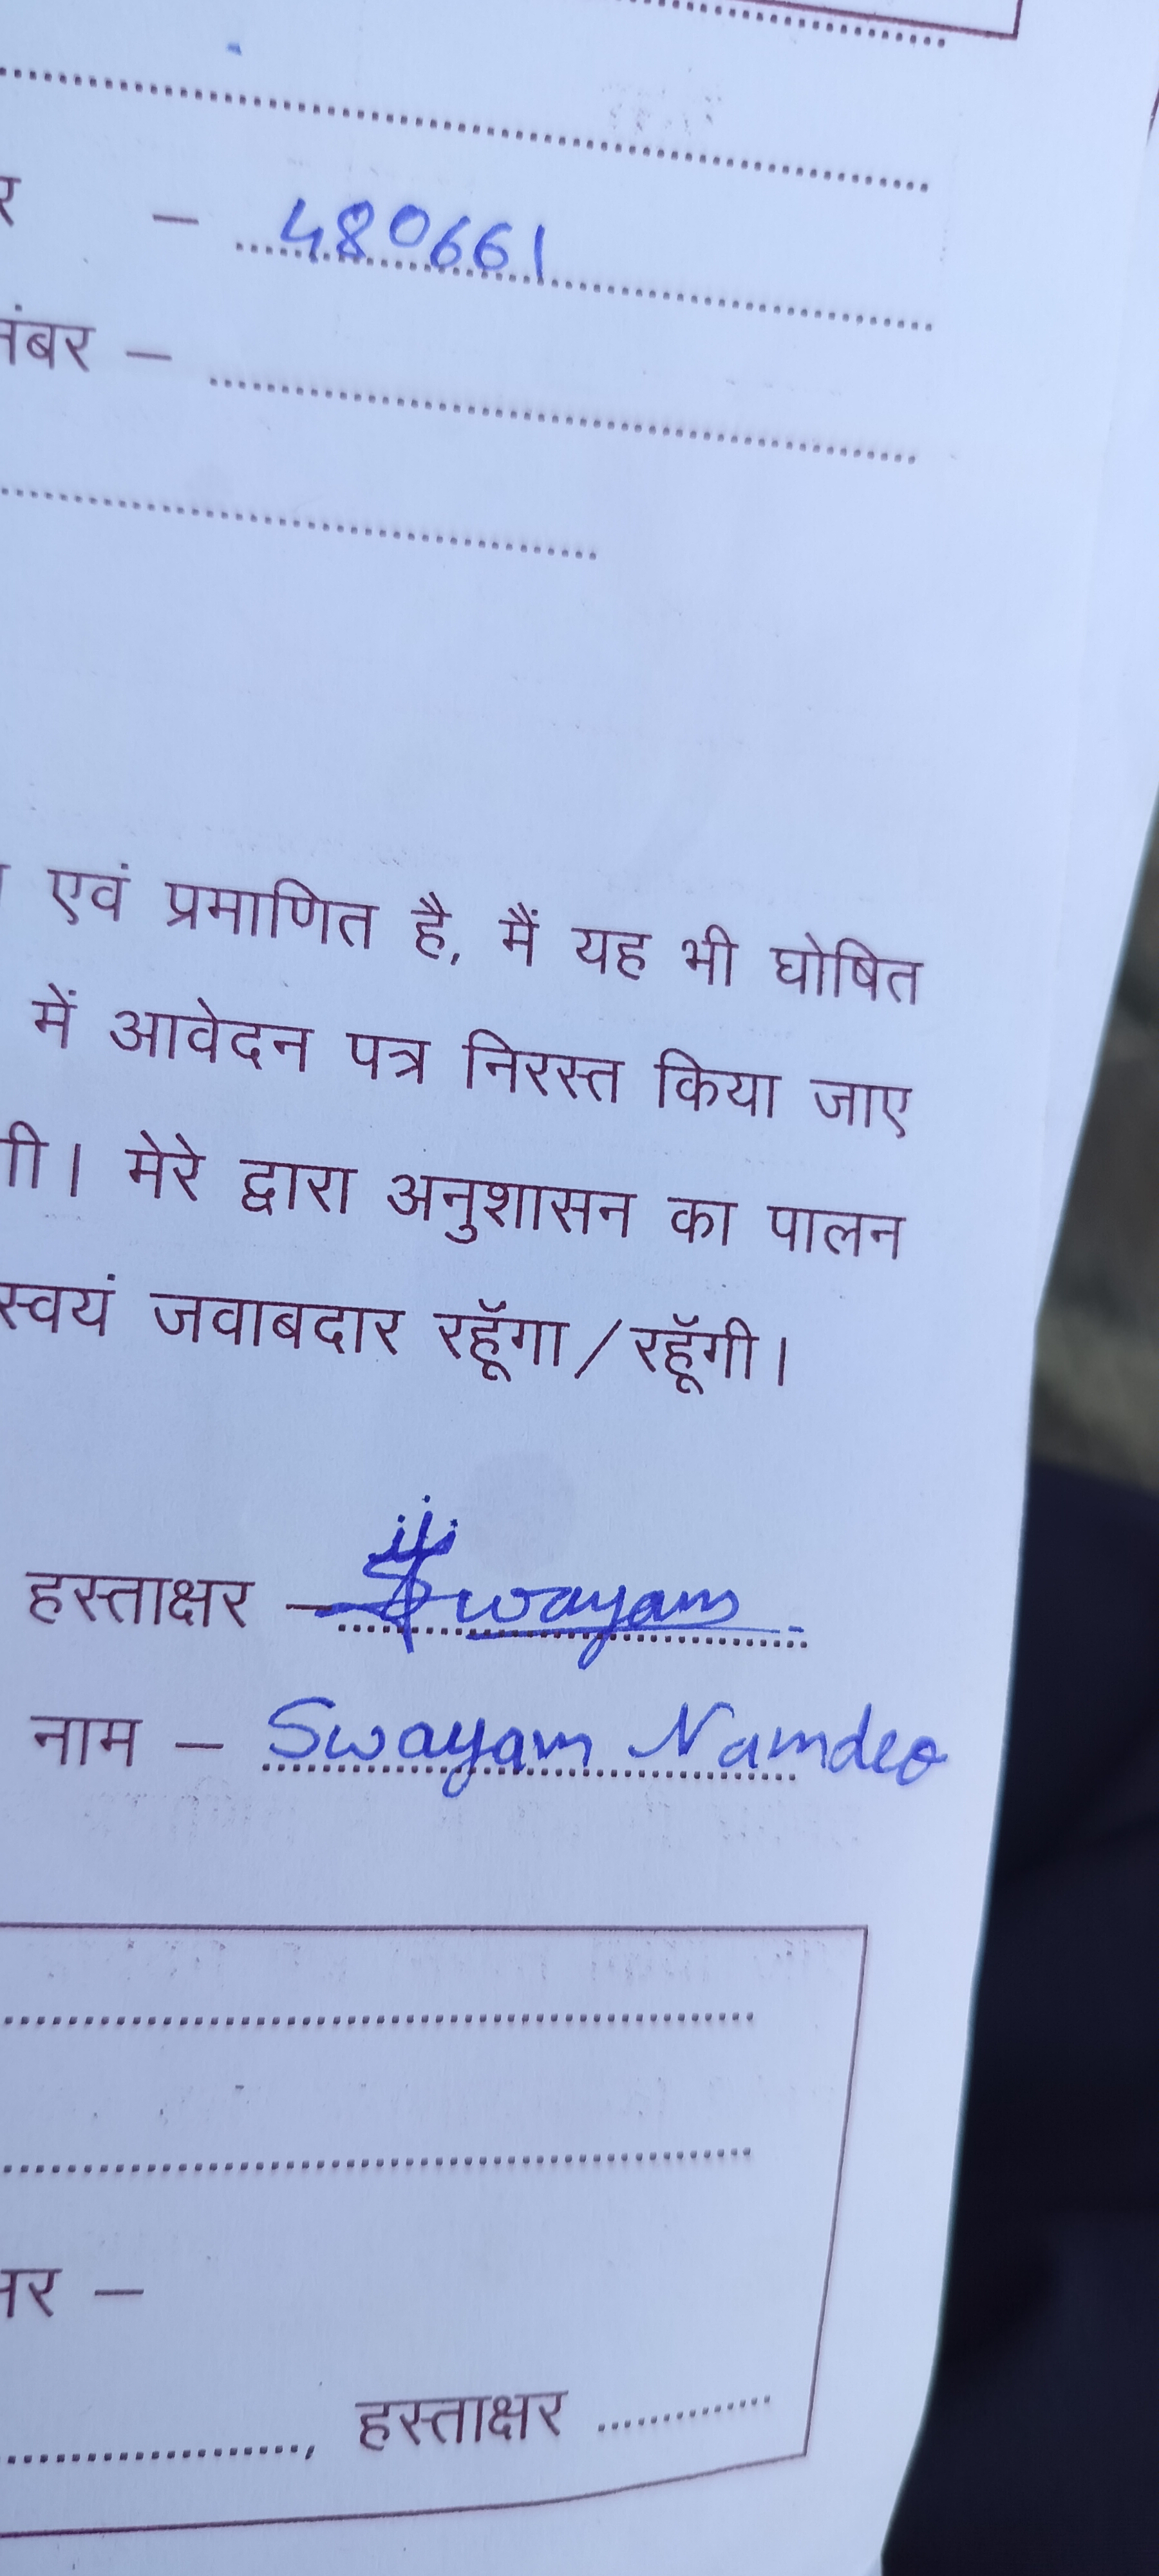 – 480661
नंबर –
एवं प्रमाणित है, मैं यह भी घोषित
में आवेदन पत्र निरस्त किया जाए
गी। मेरे द्वारा अनुशासन का पालन
स्वयं जवाबदार रहूँगा/रहूँगी।
हस्ताक्षर – Swayam
नाम – Swayam Namdeo
–
, हस्ताक्षर